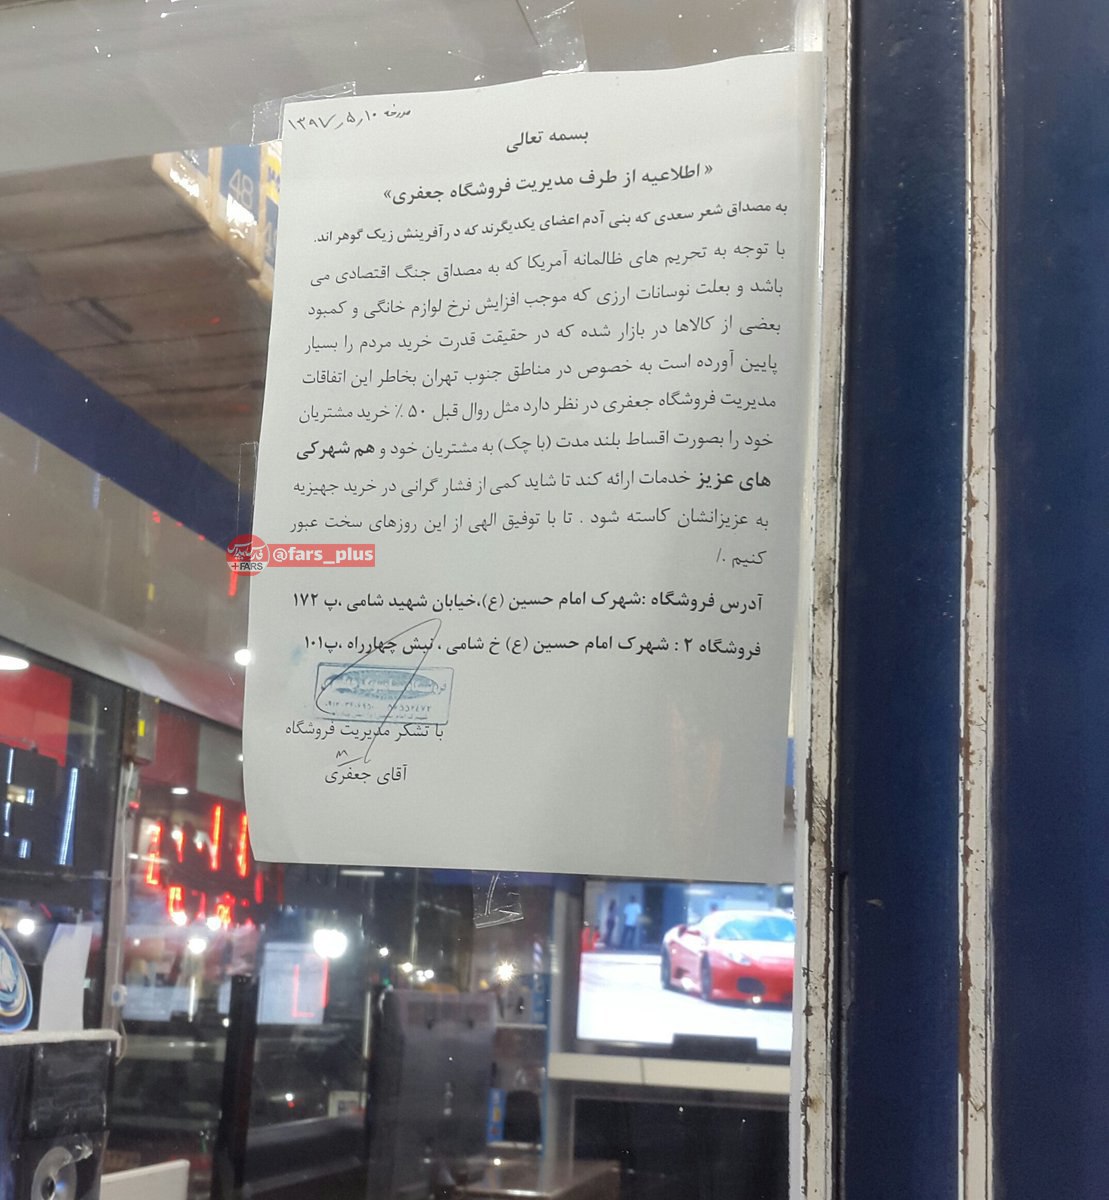 مورخه ۱۳۹۷٫۵٫۱۰
بسمه تعالی
« اطلاعیه از طرف مدیریت فروشگاه جعفری»
به مصداق شعر سعدی که بنی آدم اعضای یکدیگرند که د رآفرینش زیک گوهر اند.
با توجه به تحریم های ظالمانه آمریکا که به مصداق جنگ اقتصادی می
باشد و بعلت نوسانات ارزی که موجب افزایش نرخ لوازم خانگی و کمبود
بعضی از کالاها در بازار شده که در حقیقت قدرت خرید مردم را بسیار
پایین آورده است به خصوص در مناطق جنوب تهران بخاطر این اتفاقات
مدیریت فروشگاه جعفری در نظر دارد مثل روال قبل ۵۰ ٪ خرید مشتریان
خود را بصورت اقساط بلند مدت (با چک) به مشتریان خود و هم شهرکی
های عزیز خدمات ارائه کند تا شاید کمی از فشار گرانی در خرید جهیزیه
به عزیزانشان کاسته شود . تا با توفیق الهی از این روزهای سخت عبور
کنیم ./
آدرس فروشگاه :شهرک امام حسین (ع)،خیابان شهید شامی ،پ ۱۷۲
فروشگاه ۲ : شهرک امام حسین (ع) خ شامی ، نبش چهارراه ،پ۱۰۱
با تشکر مدیریت فروشگاه
آقای جعفری
+FARS
@fars_plus
48